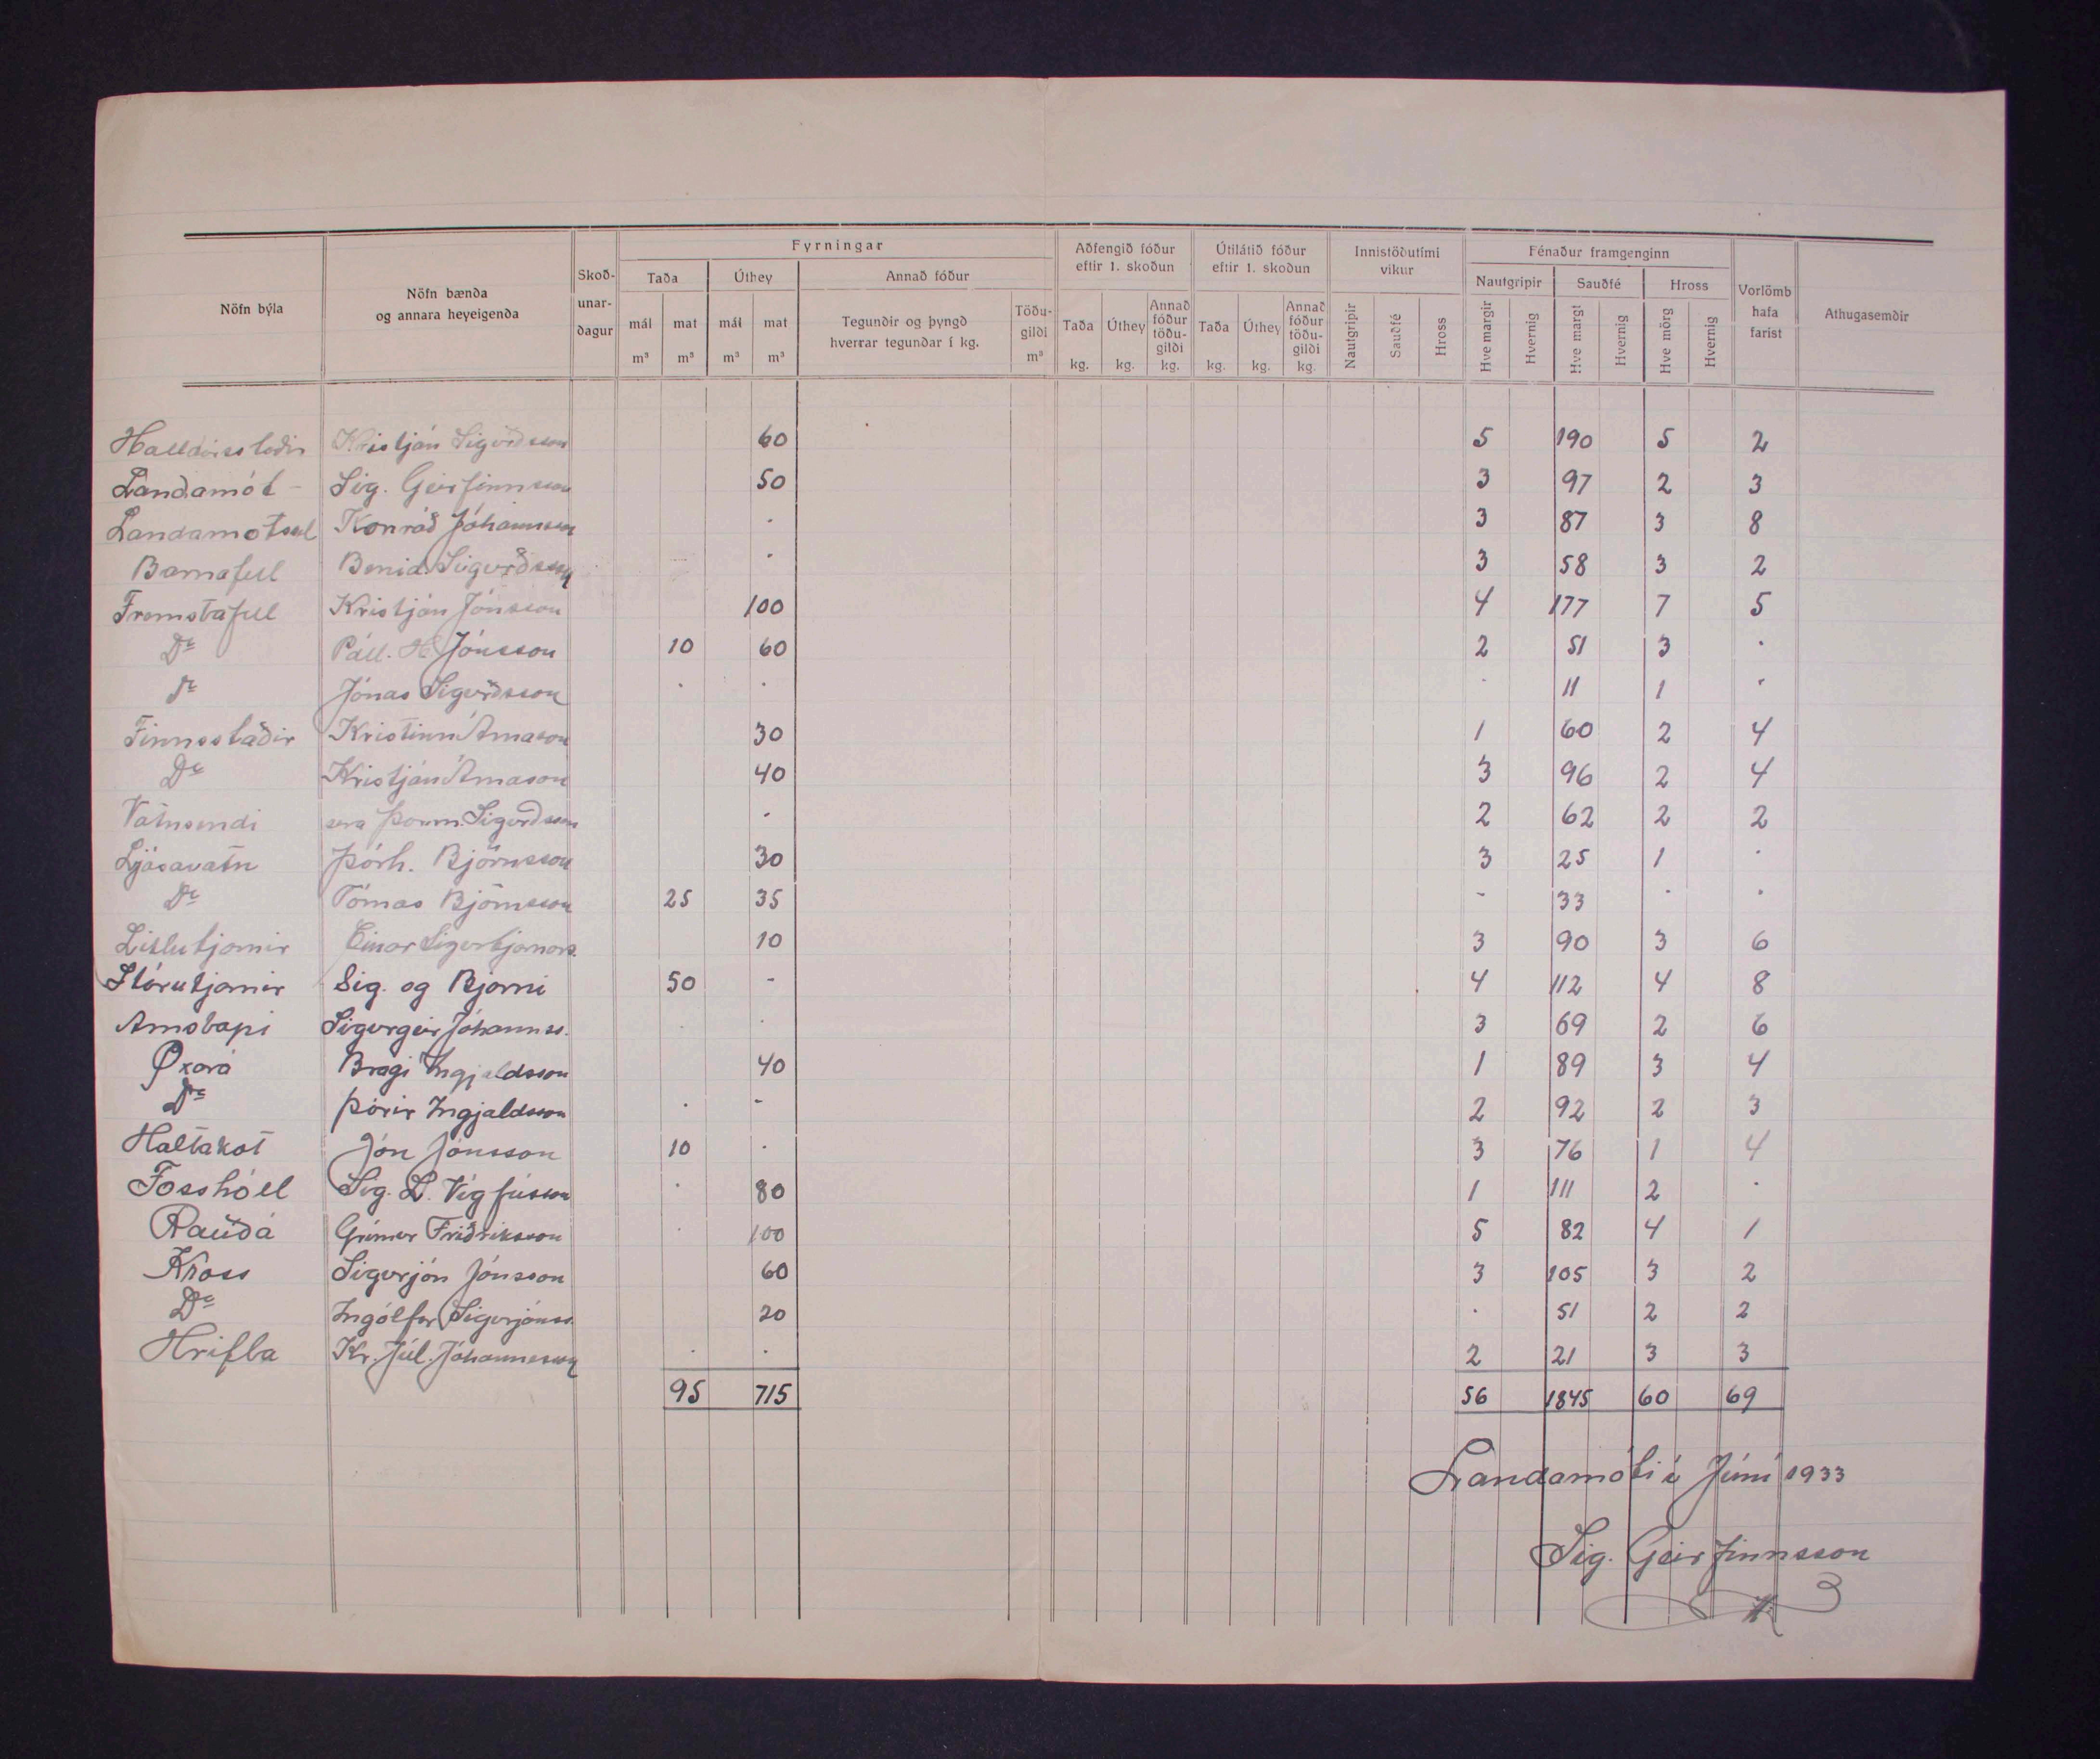 Fyrningar
Aðfengið fóður eftir 1. skoðun
Útilátið fóður eftir 1. skoðun
Innistöðutími vikur
Fénaður framgenginn
Nöfn býla
Nöfn bænda og annara heyeigenda
Skoð-unar-dagur
Taða
Úthey
Annað fóður
mál m³
mat m³
mál m³
mat m³
Tegundir og þyngd hverrar tegundar í kg.
Töðu-gildi m³
Taða kg.
Úthey kg.
Annað fóður töðu-gildi kg.
Taða kg.
Úthey kg.
Annað fóður töðu-gildi kg.
Nautgripir
Sauðfé
Hross
Nautgripir
Sauðfé
Hross
Hve margir
Hvernig
Hve margt
Hvernig
Hve mörg
Hvernig
Vorlömb hafa farist
Athugasemdir
Halldórsstaðir Kristján Sigurðsson 60 5 190 5 2
Landamót - Sig. Geirfinnsson 50 3 97 2 3
Landamotssel Konráð Jóhannsson . 3 87 3 8
Barnafell Benid. Sigurðsson . 3 58 3 2
Fremstafell Kristján Jónsson 100 4 177 7 5
Do Páll. H Jónsson 10 60 2 51 3 .
Do Jónas Sigurðsson . . . 11 1 .
Finnsstaðir Kristinn Árnason 30 1 60 2 4
Do Kristján Árnason 40 3 96 2 4
Vatnsendi séra Þorm. Sigurðsson . 2 62 2 2
Ljósavatn Þórh. Björnsson 30 3 25 1 .
Do Tómas Björnsson 25 35 - 33 . .
Litlutjarnir Einar Sigurbjarnars. 10 3 90 3 6
Stórutjarnir Sig. og Bjarni 50 - 4 112 4 8
Arnstapi Sigurgeir Jóhannss. . . 3 69 2 6
Øxará Bragi Ingjaldsson 40 1 89 3 4
Do Þórir Ingjaldsson . - 2 92 2 3
Holtakot Jón Jónsson 10 . 3 76 1 4
Fosshóll Sig. L. Vigfússon . 80 1 111 2 .
Rauðá Grímur Friðriksson . 100 5 82 4 1
Kross Sigurjón Jónsson 60 3 105 3 2
Do Ingólfur Sigurjónss. 20 . 51 2 2
Hrifla Kr. Júl. Jóhannesson . . 2 21 3 3
95 715 56 1845 60 69
Landamóti í Júní 1933
Sig. Geirfinnsson